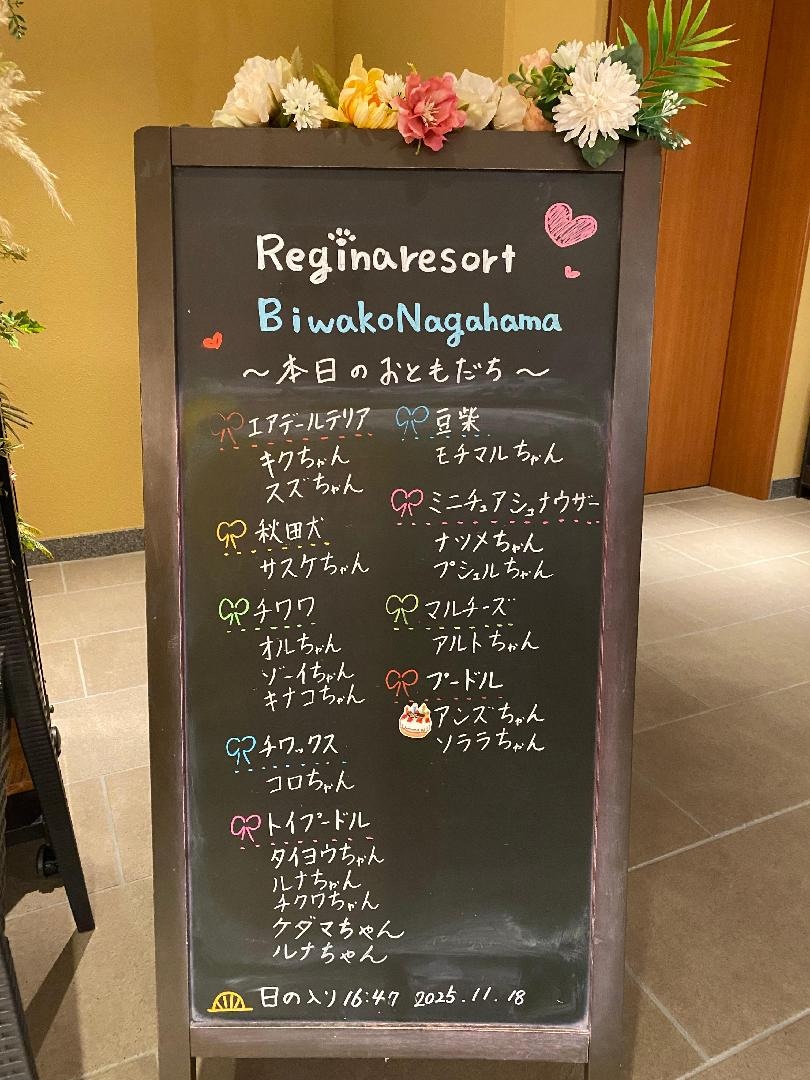 Reginaresort
BiwakoNagahama
～本日のおともだち～
エアデールテリア
キクちゃん
スズちゃん
秋田犬
サスケちゃん
チワワ
オルちゃん
ゾーイちゃん
キナコちゃん
チワックス
コロちゃん
トイプードル
タイヨウちゃん
ルナちゃん
チクワちゃん
ケダマちゃん
ルナちゃん
豆柴
モチマルちゃん
ミニチュアシュナウザー
ナツメちゃん
プシュルちゃん
マルチーズ
アルトちゃん
プードル
アンズちゃん
ソララちゃん
日の入り16:47 2025.11.18